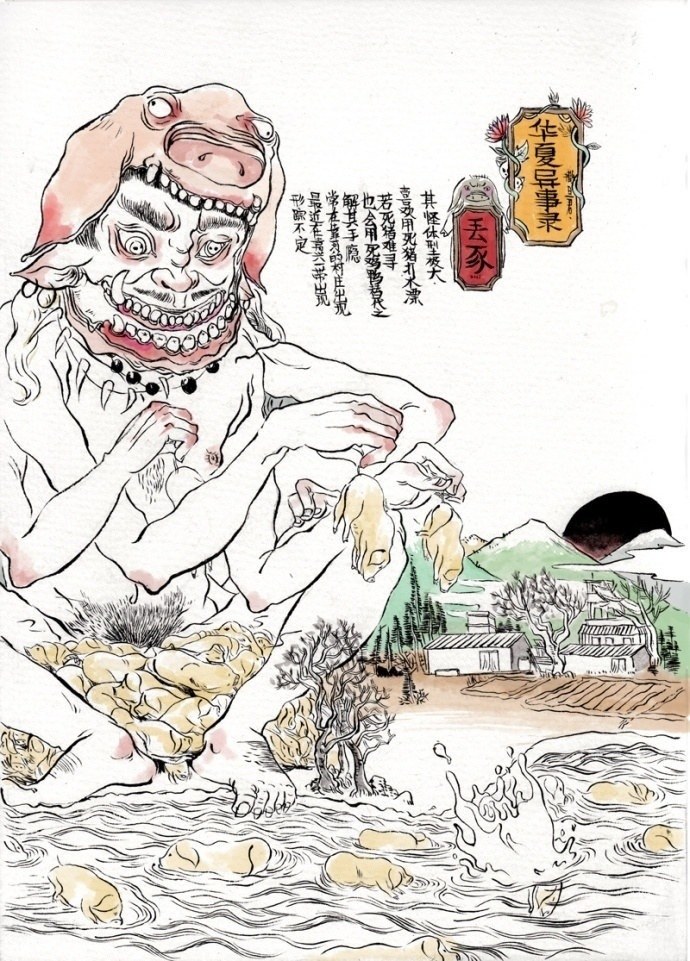 华夏异事录
丢豕
其怪体型庞大
喜欢用死猪打水漂
若死猪难寻
也会用死鸡鸭替代之
解其手瘾
常在靠河的村庄出现
最近在嘉兴一带出现
形踪不定